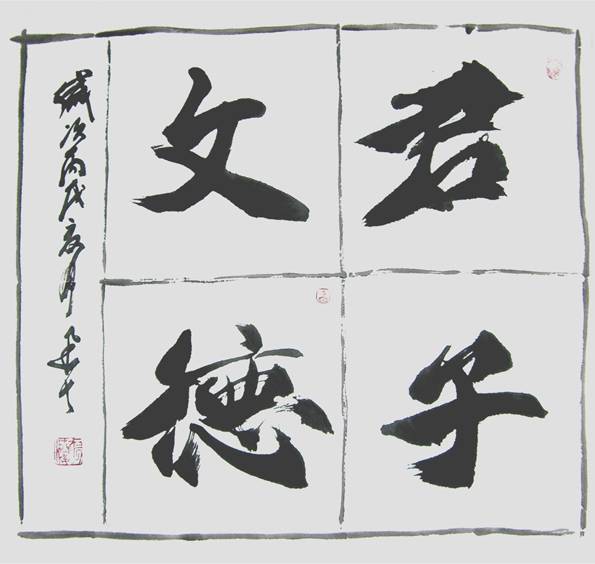 君子
文德
歲次丙戌亥月